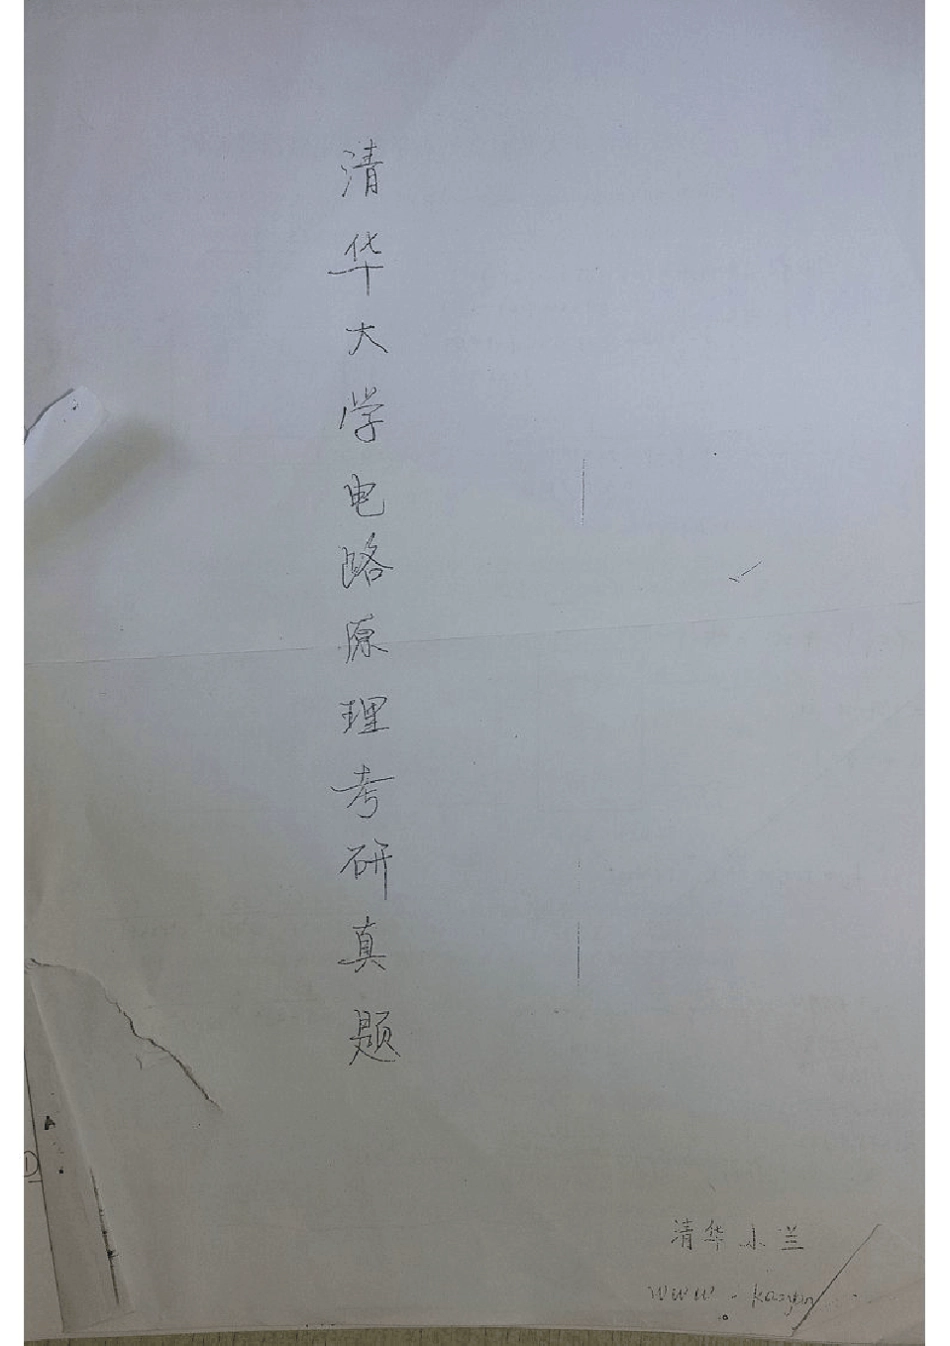 清华大学电路原理考研真题
清华小兰
www.
①